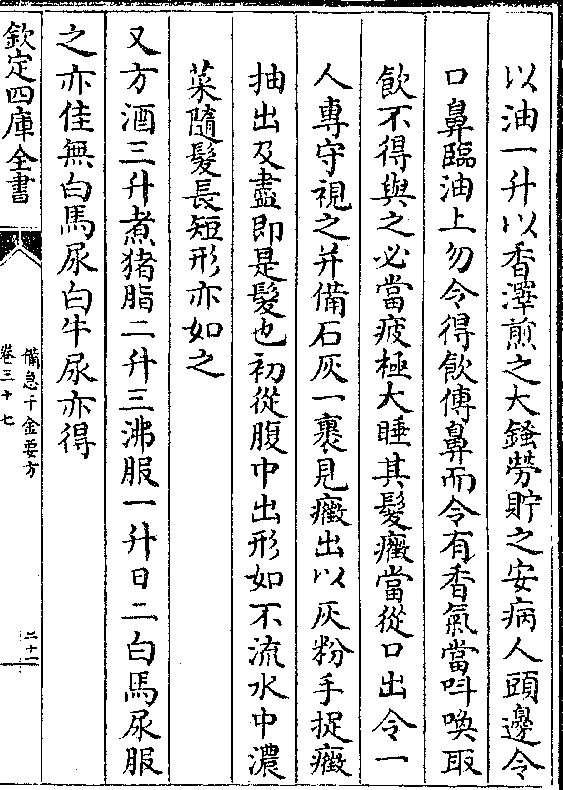 以油一升以香澤煎之大鎝勞貯之安病人頭邊令
口鼻臨油上勿令得飲傅鼻而令有香氣當叫喚取
飲不得與之必當疲極大睡其髮癥當從口出令一
人專守視之并備石灰一裹見癥出以灰粉手捉癥
抽出及盡即是髮也初從腹中出形如不流水中濃
菜隨髮長短形亦如之
又方酒三升煮猪脂二升三沸服一升日二白馬尿服
之亦佳無白馬尿白牛尿亦得
欽定四庫全書
備急千金要方
卷三十七
二十一